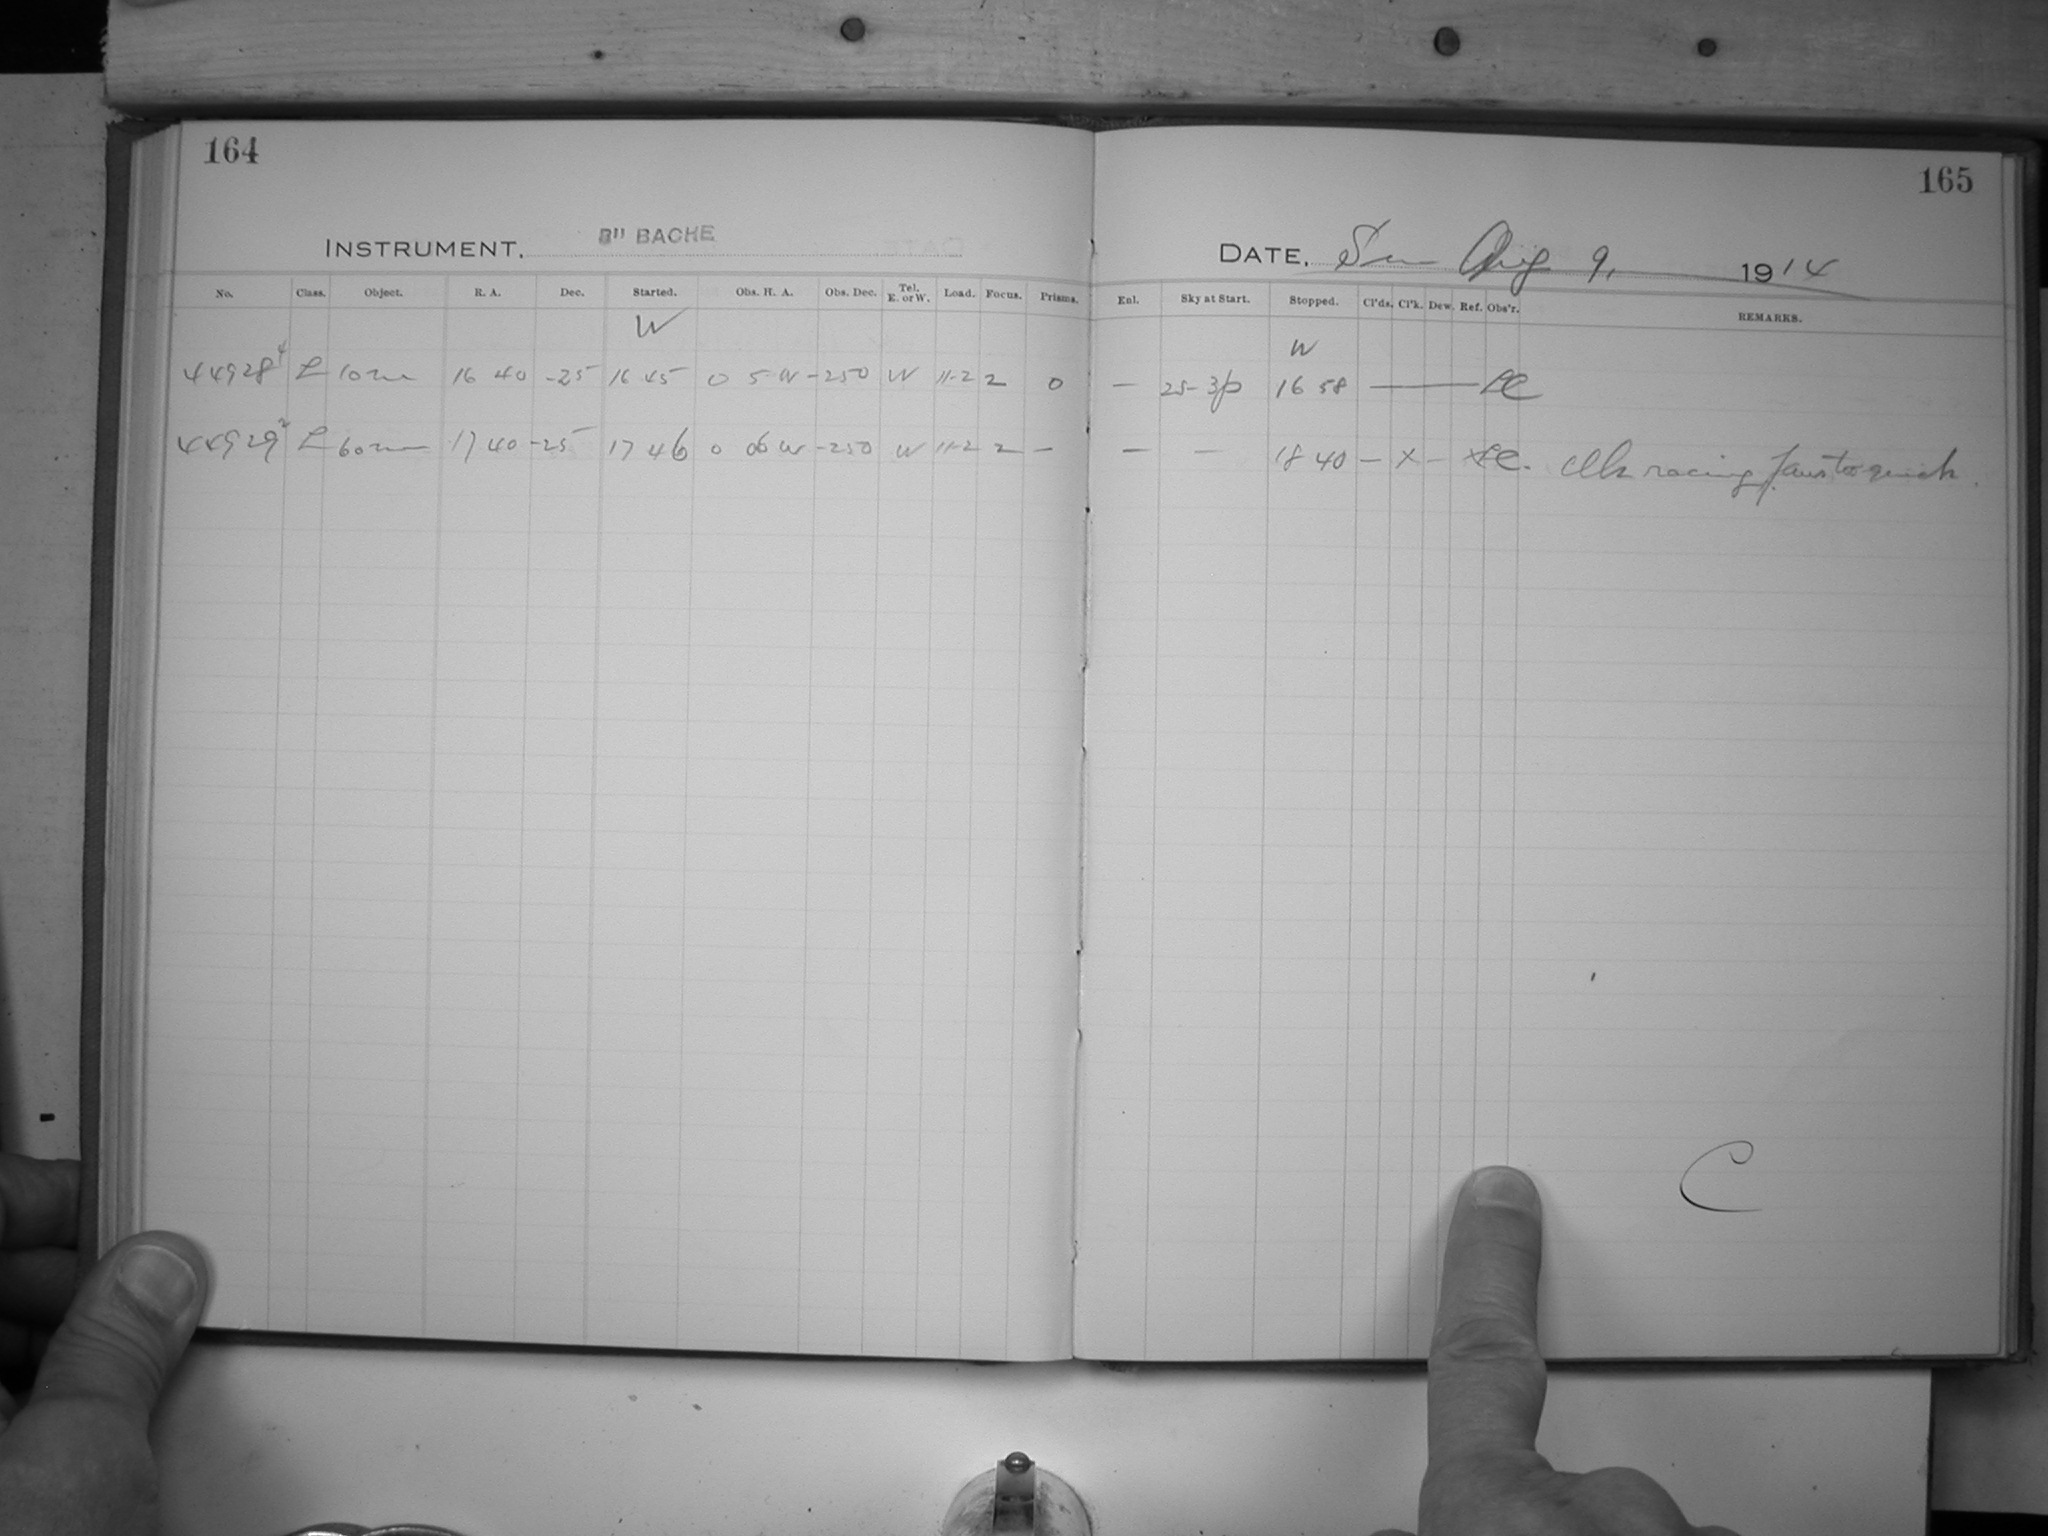 164
165
INSTRUMENT. 8" BACHE
DATE. Sun Aug 9. 1914
No. Class. Object. R. A. Dec. Started. Obs. H. A. Obs. Dec. Tel. E. or W. Load. Focus. Prisms. Enl. Sky at Start. Stopped. Cl'ds. Cl'k. Dew. Ref. Obs'r. REMARKS.
W W
44928 4 L 10m 16 40 -25 16 45 0 5 W -250 W 11-2 2 0 — 25- 3p 16 58 —
44929 2 L 60m 17 40 -25 17 46 0 06 W -250 W 11-2 2 — — — 18 40 — x — x racing too quick.
C